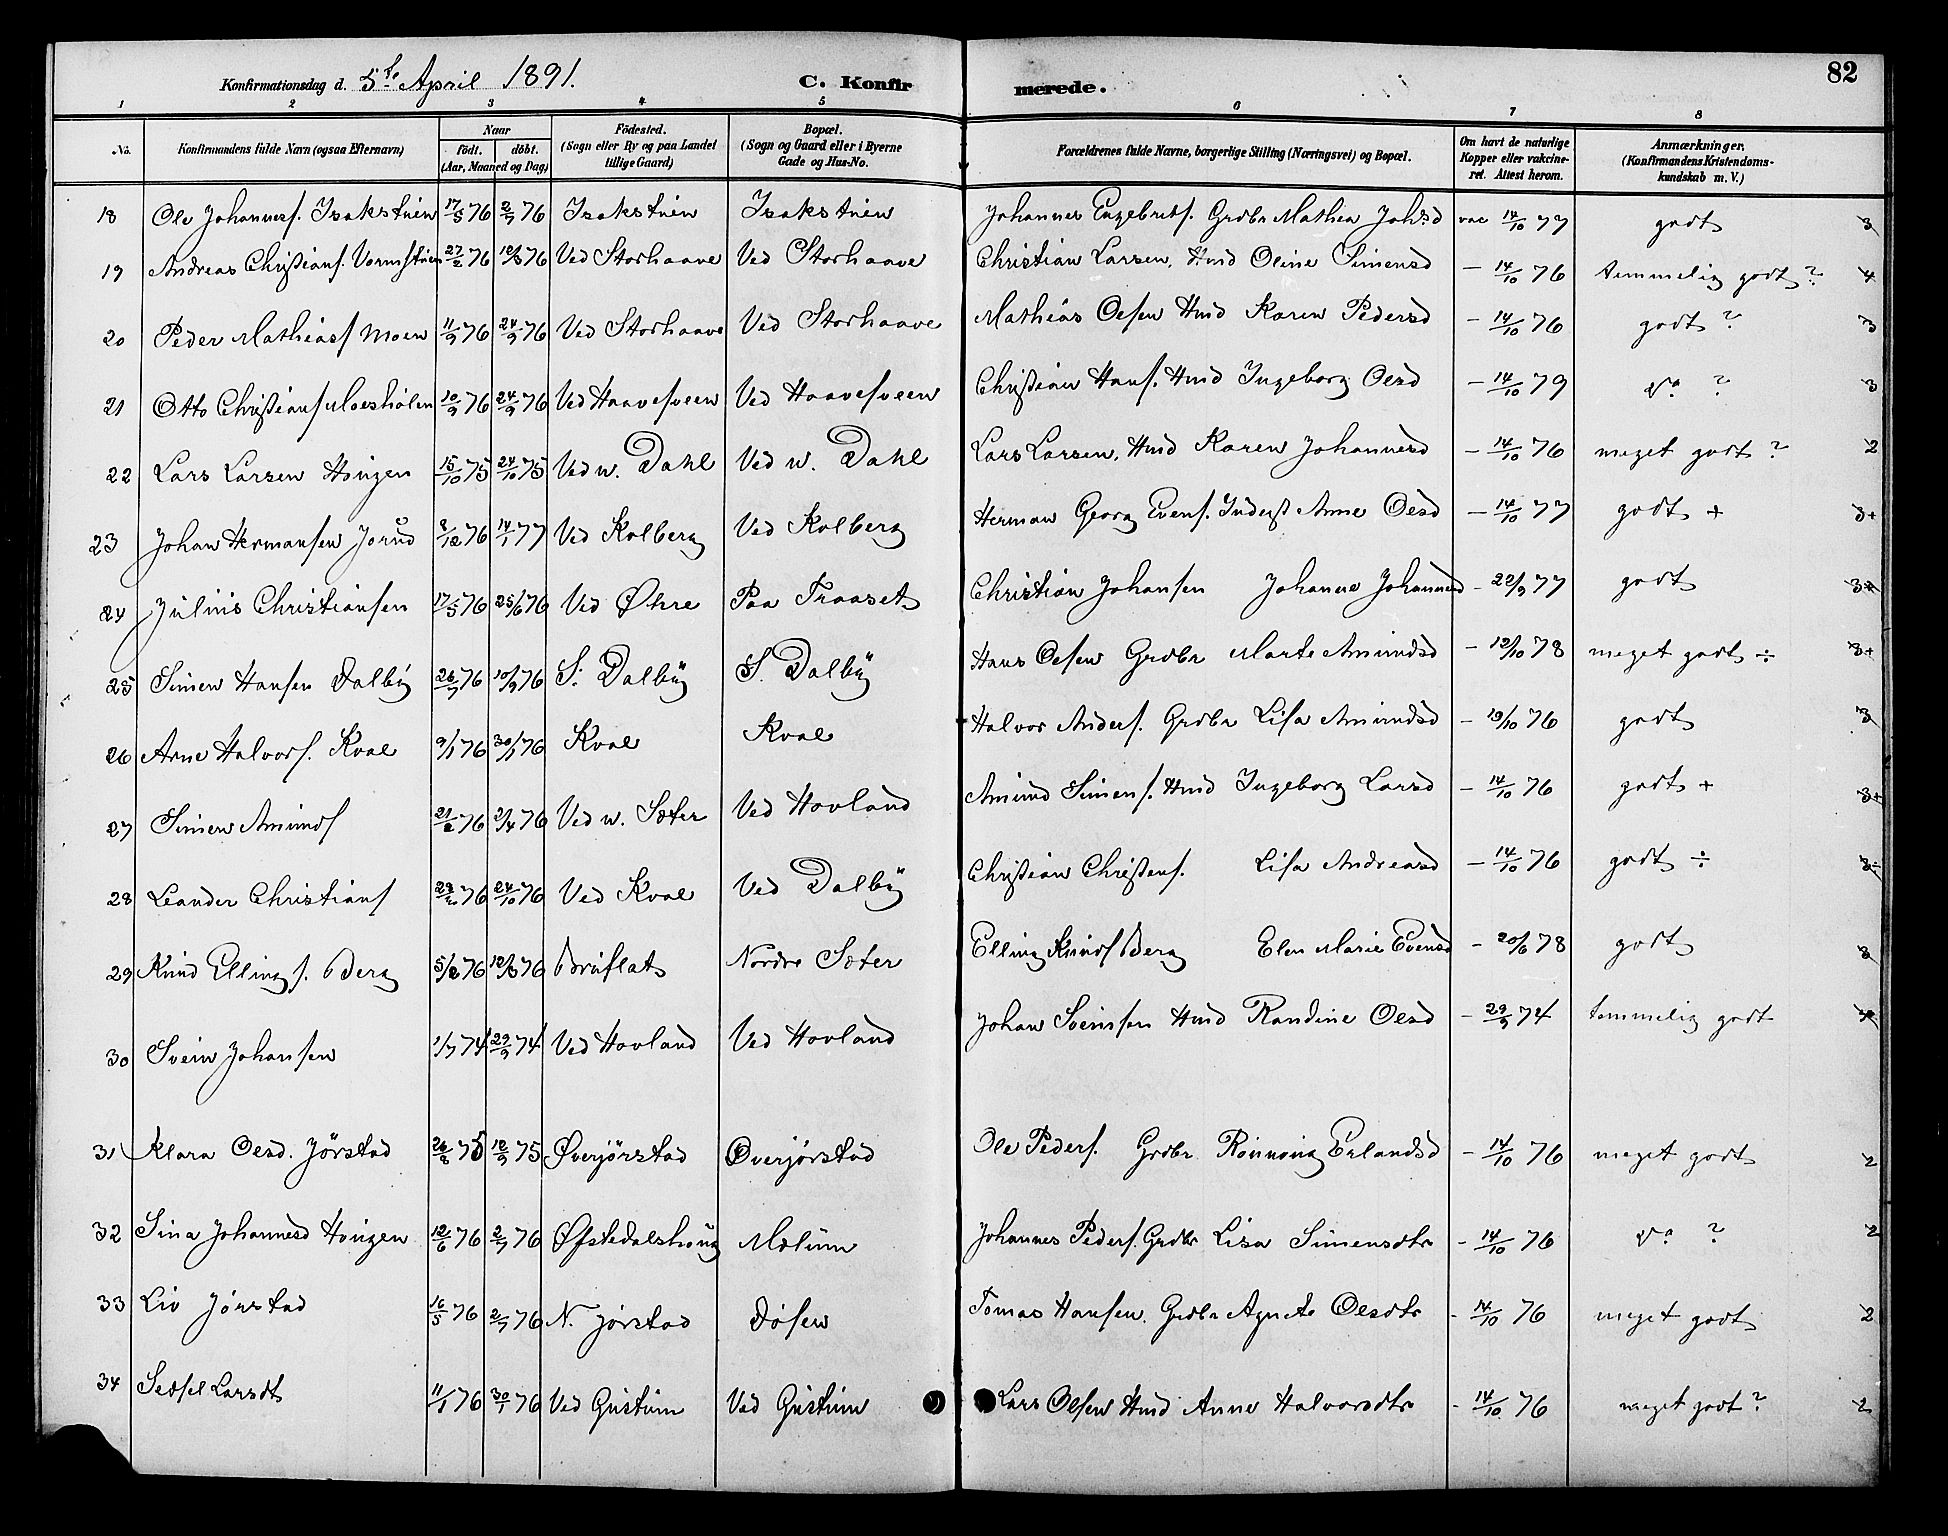 Konfirmationsdag d. 5te April 1891.
C. Konfirmerede.
82
1 2 3 4 5 6 7 8
No.
Konfirmandens fulde Navn (ogsaa Efternavn)
Naar
födt. döbt.
(Aar, Maaned og Dag)
Födested.
(Sogn eller By og paa Landet
tillige Gaard)
Bopæl.
(Sogn og Gaard eller i Byerne
Gade og Hus-No.
Forældrenes fulde Navne, borgerlige Stilling (Næringsvei) og Bopæl.
Om havt de naturlige
Kopper eller vakcine-
ret. Attest herom.
Anmærkninger.
(Konfirmandens Kristendoms-
kundskab m. V.)
18 Ole Johannesf. Isakstuen 17/5 76 2/7 76 Isakstuen Isakstuen Johannes Engebretf. Grdbr Mathea Johsd vac 14/10 77 godt 3
19 Andreas Christianf. 27/2 76 76 Ved Storhaave Ved Storhaave Christian Larsen, Hmd Oline Simensd – 14/10 76 temmelig godt ? 4
20 Peder Mathiasf Moen 11/9 76 24/9 76 Ved Storhaave Ved Storhaave Mathias Olsen Hmd Karen Pedersd – 14/10 76 godt ? 3
21 Otto Christianf 10/9 76 24/9 76 Ved Haavesveen Ved Haavesveen Christian Hansf. Hmd Ingeborg Olsd – 14/10 79 do ? 3
22 Lars Larsen Hougen 15/10 75 24/10 75 Ved n. Dahl Ved n. Dahl Lars Larsen, Hmd Karen Johannesd – 14/10 76 meget godt ? 2
23 Johan Hermansen Jorud 8/12 76 14/1 77 Ved Kolberg Ved Kolberg Herman Georg Evenf. Inderst Anne Olsd – 14/10 77 godt + 3+
24 Julius Christiansen 17/5 76 25/6 76 Ved Øhre Paa Traaset Christian Johansen Johanne Johannesd – 22/9 77 godt
25 Simen Hansen Dalby 26/7 76 10/9 76 S. Dalby S. Dalby Hans Olsen Grdbr Marte Amundsd – 12/10 78 meget godt ÷ 3+
26 Arne Halvorf. Kval 9/1 76 30/1 76 Kval Kval Halvor Andersf. Grdbr Lisa Amundsd – 19/10 76 godt 3
27 Simen Amundf 21/2 76 2/4 76 Ved n. Sæter Ved Hovland Amund Simensf. Hmd Ingeborg Larsd – 14/10 76 godt + 3+
28 Leander Christianf 76 24/10 76 Ved Kval Ved Dalby Christian Christenf. Lisa Andreasd – 14/10 76 godt ÷ 3÷
29 Knud Ellingf. Berg 5/2 76 12/3 76 Bruflat Nordre Sæter Elling Knudf Berg Elen Marie Evensd – 20/6 78 godt 3
30 Svein Johansen 1/7 74 29/9 74 Ved Hovland Ved Hovland Johan Sveinsen Hmd Randine Olsd – 29/9 74 temmelig godt
31 Klara Olsd. Jørstad 26/8 75 12/9 75 Øverjørstad Øverjørstad Ole Pedersf. Grdbr Rønnoug Erlandsd – 14/10 76 meget godt 2
32 Sina Johannesd Hougen 12/6 76 2/7 76 Øfstedalshoug Mælum Johannes Pedersf. Grdbr Lisa Simensdtr – 14/10 76 do ? 2
33 Liv Jørstad 16/5 76 2/7 76 N. Jørstad Døsen Tomas Hansen. Grdbr Agnete Olsdtr – 14/10 76 meget godt 2
34 Sedsel Larsdt 11/1 76 30/1 76 Ved Gustum Ved Gustum Lars Olsen Hmd Anne Halvorsdtr – 14/10 76 meget godt ? 2